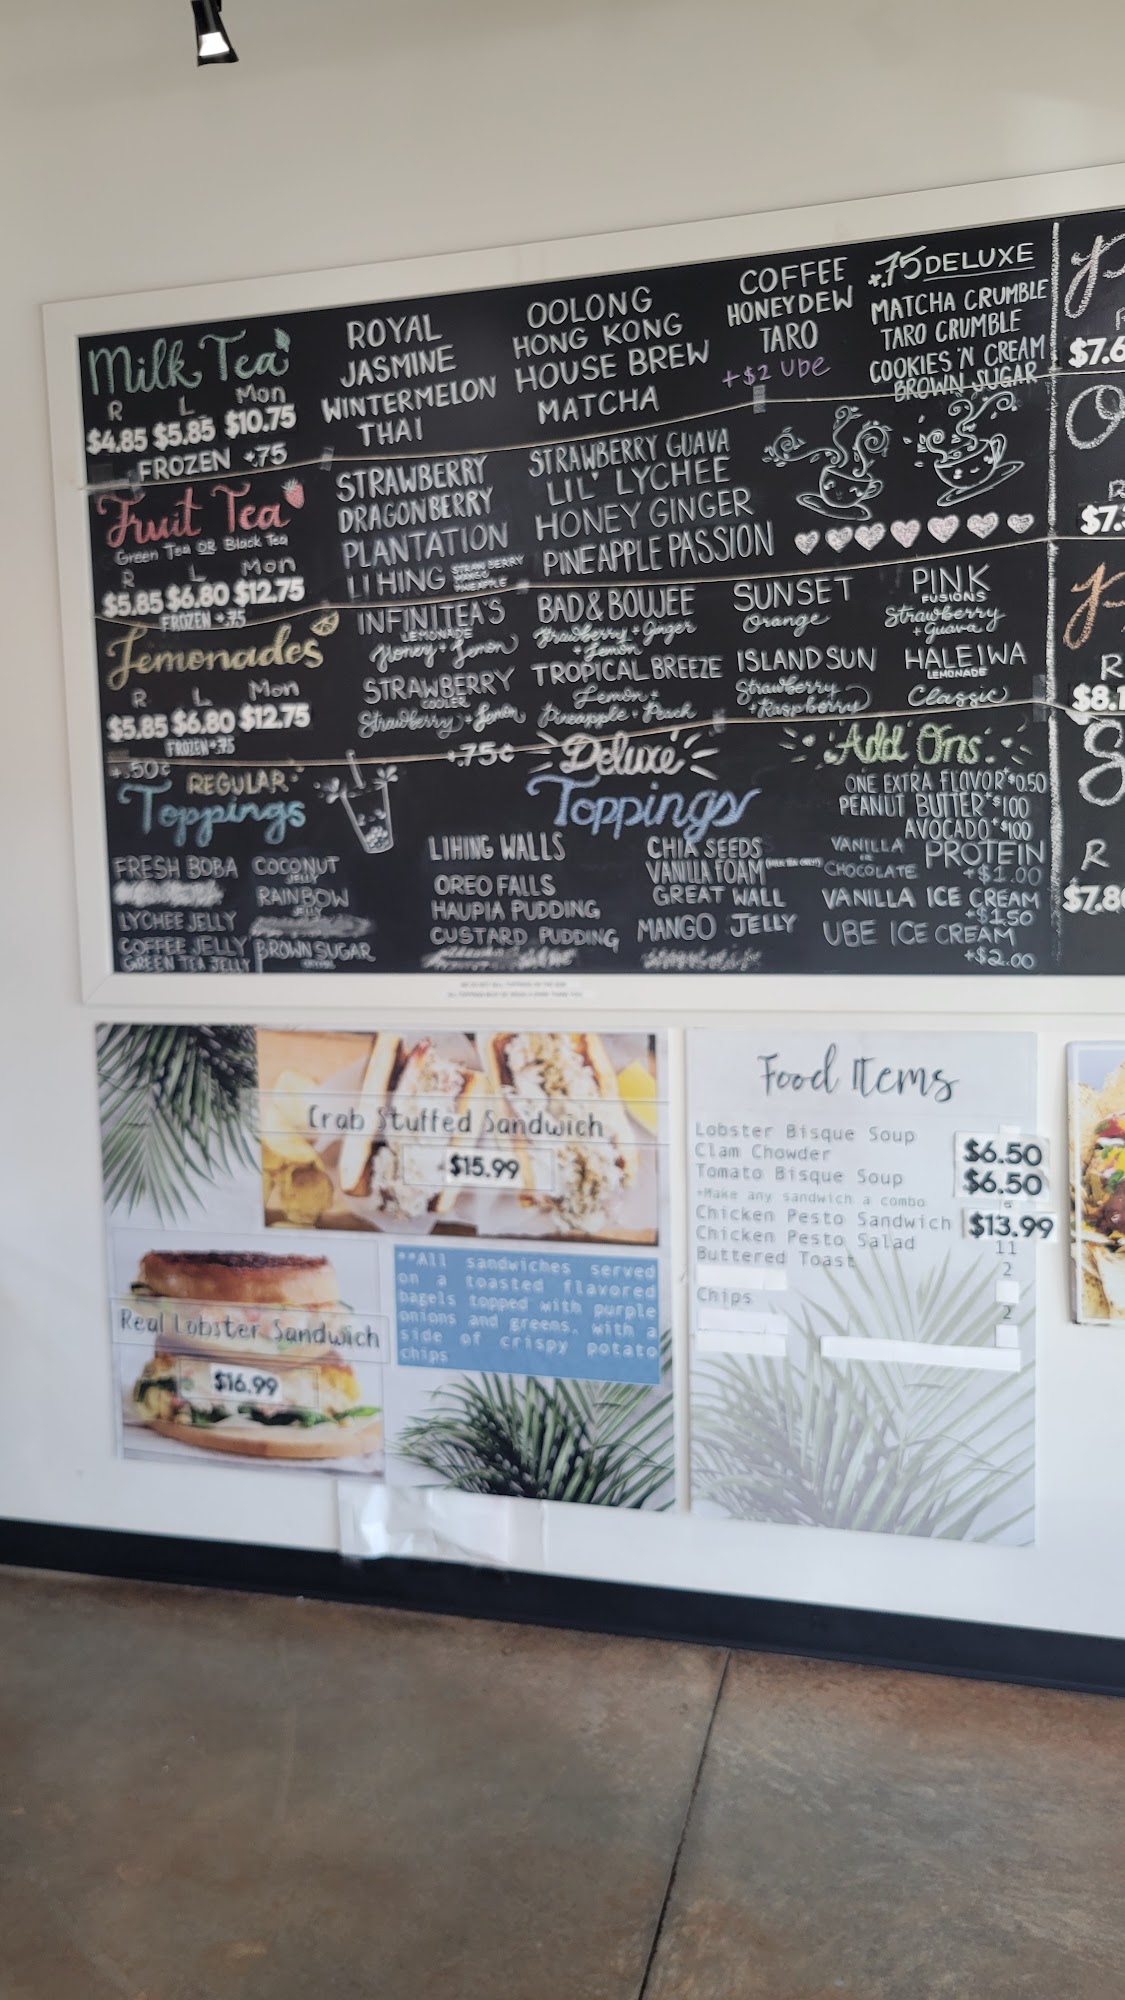 Milk Tea
R L Mon
$4.85 $5.85 $10.75
FROZEN +.75
ROYAL
JASMINE
WINTERMELON
THAI
OOLONG
HONG KONG
HOUSE BREW
MATCHA
COFFEE
HONEYDEW
TARO
+$2 Ube
+.75 DELUXE
MATCHA CRUMBLE
TARO CRUMBLE
COOKIES 'N CREAM
BROWN SUGAR
Fruit Tea
Green Tea OR Black Tea
R L Mon
$5.85 $6.80 $12.75
FROZEN +.75
STRAWBERRY
DRAGONBERRY
PLANTATION
LI HING STRAWBERRY
MANGO
PINEAPPLE
STRAWBERRY GUAVA
LIL' LYCHEE
HONEY GINGER
PINEAPPLE PASSION
Lemonades
R L Mon
$5.85 $6.80 $12.75
FROZEN +.75
INFINITEA'S
LEMONADE
Honey + Lemon
STRAWBERRY
COOLER
Strawberry + Lemon
BAD & BOUJEE
Strawberry + Ginger
+ Lemon
TROPICAL BREEZE
Lemon +
Pineapple + Peach
SUNSET
Orange
ISLAND SUN
Strawberry
+ Raspberry
PINK
FUSIONS
Strawberry
+ Guava
HALEIWA
LEMONADE
Classic
+.50¢
REGULAR
Toppings
FRESH BOBA
LYCHEE JELLY
COFFEE JELLY
GREEN TEA JELLY
COCONUT
JELLY
RAINBOW
JELLY
BROWN SUGAR
+.75¢
Deluxe
Toppings
LIHING WALLS
OREO FALLS
HAUPIA PUDDING
CUSTARD PUDDING
CHIA SEEDS
VANILLA FOAM
GREAT WALL
MANGO JELLY
Add Ons:
ONE EXTRA FLOVOR +$0.50
PEANUT BUTTER +$1.00
AVOCADO +$1.00
VANILLA
OR
CHOCOLATE PROTEIN
+$1.00
VANILLA ICE CREAM
+$1.50
UBE ICE CREAM
+$2.00
R
R
R
Crab Stuffed Sandwich
$15.99
Real Lobster Sandwich
$16.99
**All sandwiches served
on a toasted flavored
bagels topped with purple
onions and greens, with a
side of crispy potato
chips
Food Items
Lobster Bisque Soup
Clam Chowder $6.50
Tomato Bisque Soup $6.50
+Make any sandwich a combo
Chicken Pesto Sandwich $13.99
Chicken Pesto Salad 11
Buttered Toast 2
Chips 2